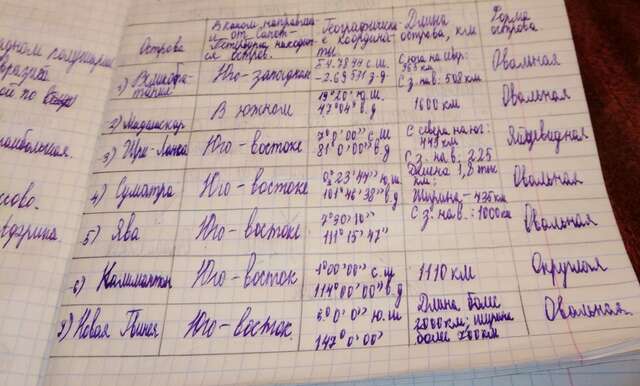 Острова
В каком направле-
нии от Санкт-
Петербурга находит-
ся остров.
Географические
координа-
ты
Длина
острова, км
Форма
острова
1) Великобри-
тания
Юго-западном
54.7844 с.ш.
-2.69531 з.д.
С юга на север:
965 км
С з. на в: 508 км
Овальная
2) Мадагаскар
В южном
19°20' ю.ш.
47°04' в.д
1600 км
Овальная
3) Шри-Ланка
Юго-востоке
7°0'00" с.ш
81°0'00" в.д
С севера на юг:
445 км
С з. на в. 225
Яйцевидная
4) Суматра
Юго-востоке
0°23'44" ю.ш.
101°46'38" в.д
Длина 1,8 тыс
км;
Ширина - 435км
Овальная
5) Ява
Юго-востоке
7°30'10"
111°15'47"
С з. на в.: 1000км
Овальная
6) Калимантан
Юго-восток
1°00'00" с.ш
114°00'00" в.д
1110 км
Округлая
7) Новая Гвинея
Юго-восток.
6°0'0" ю.ш
147°0'00"
Длина более
2000км; ширина
более 700км
Овальная.